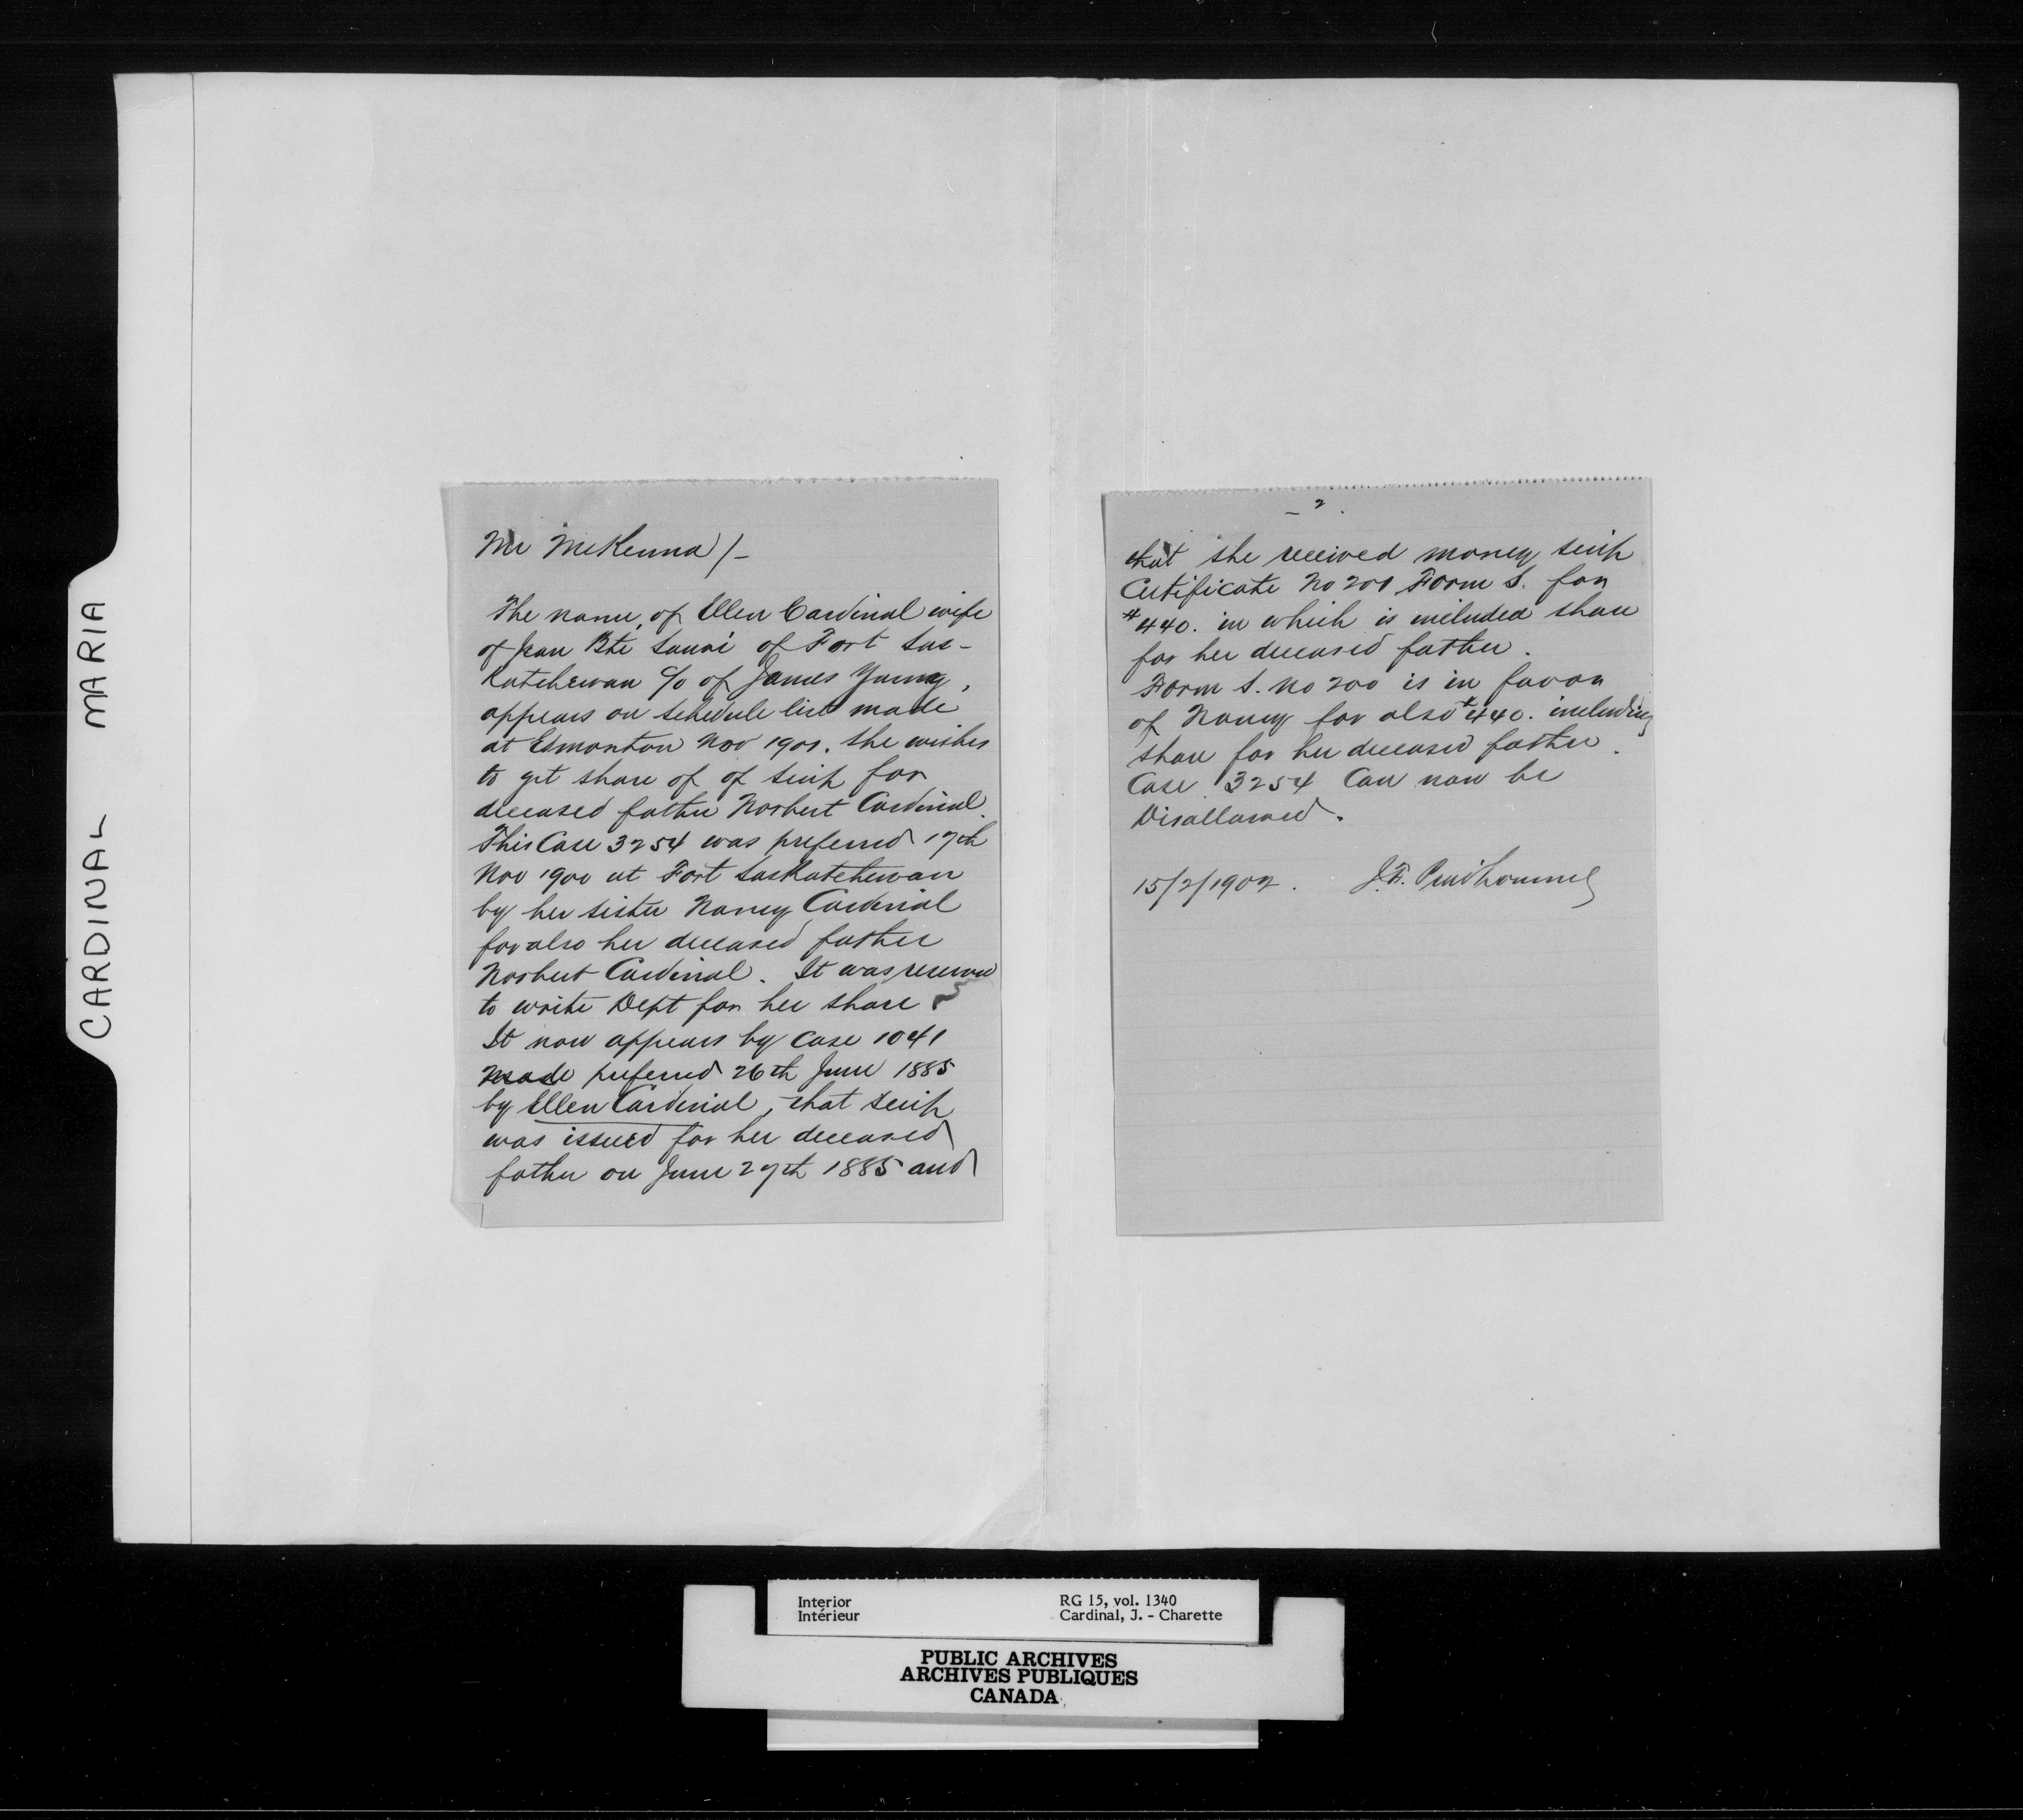 CARDINAL MARIA
Mr McKenna /-
The name, of Ellen Cardinal wife
of Jean Bte of Fort Sas-
katchewan c/o of James Young,
appears on schedule list made
at Edmonton Nov 1901. She wishes
to get share of of scrip for
deceased father Norbert Cardinal.
This Case 3254 was preferred 17th
Nov 1900 at Fort Saskatchewan
by her sister Nancy Cardinal
for also her deceased father
Norbert Cardinal. It was
to write Dept for her share
It now appears by case 1041
made preferred 26th June 1885
by Ellen Cardinal, that scrip
was issued for her deceased
father on June 27th 1885 and
- 2 .
that she received money scrip
Certificate No 201 Form S. for
$440. in which is included share
for her deceased father.
Form S. No 200 is in favor
of Nancy for also $440. including
share for her deceased father.
Case 3254 Can now be
Disallowed.
15/2/1902. J.F. Prudhomme
Interior RG 15, vol. 1340
Intérieur Cardinal, J. - Charette
PUBLIC ARCHIVES
ARCHIVES PUBLIQUES
CANADA